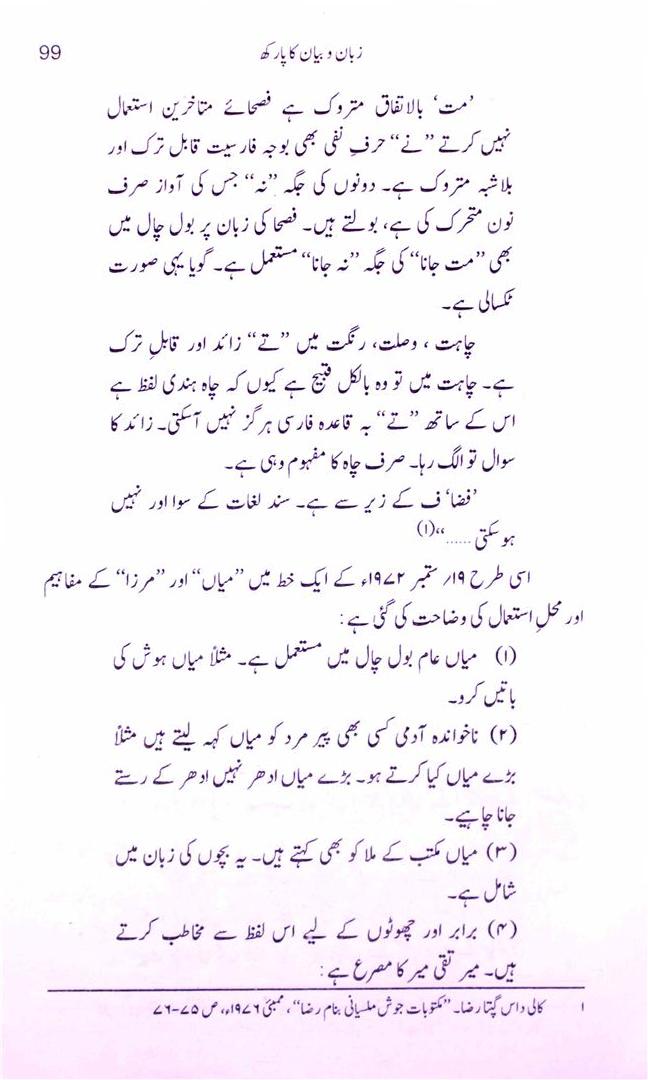 زبان و بیان کا پارکھ 99
’مت‘ بالاتفاق متروک ہے فصحائے متاخرین استعمال
نہیں کرتے ’’نے‘‘ حرفِ نفی بھی بوجہ فارسیت قابل ترک اور
بلا شبہ متروک ہے۔ دونوں کی جگہ ’’نہ‘‘ جس کی آواز صرف
نون متحرک کی ہے، بولتے ہیں۔ فصحا کی زبان پر بول چال میں
بھی ’’مت جانا‘‘ کی جگہ ’’نہ جانا‘‘ مستعمل ہے۔ گویا یہی صورت
ٹکسالی ہے۔
چاہت ، وصلت، رنگت میں ’’تے‘‘ زائد اور قابلِ ترک
ہے۔ چاہت میں تو وہ بالکل قبیح ہے کیوں کہ چاہ ہندی لفظ ہے
اس کے ساتھ ’’تے‘‘ بہ قاعدہ فارسی ہرگز نہیں آسکتی۔ زائد کا
سوال تو الگ رہا۔ صرف چاہ کا مفہوم وہی ہے۔
’فضا‘ ف کے زبر سے ہے۔ سند لغات کے سوا اور نہیں
ہوسکتی ......‘‘(۱)
اسی طرح ۱۹؍ ستمبر ۱۹۷۲ء کے ایک خط میں ’’میاں‘‘ اور ’’مرزا‘‘ کے مفاہیم
اور محلِ استعمال کی وضاحت کی گئی ہے:
(۱) میاں عام بول چال میں مستعمل ہے۔ مثلاً میاں ہوش کی
باتیں کرو۔
(۲) ناخواندہ آدمی کسی بھی پیر مرد کو میاں کہہ لیتے ہیں مثلاً
بڑے میاں کیا کرتے ہو۔ بڑے میاں ادھر نہیں ادھر کے رستے
جانا چاہیے۔
(۳) میاں مکتب کے ملا کو بھی کہتے ہیں۔ یہ بچوں کی زبان میں
شامل ہے۔
(۴) برابر اور چھوٹوں کے لیے اس لفظ سے مخاطب کرتے
ہیں۔ میر تقی میر کا مصرع ہے:
۱ کالی داس گپتا رضا۔ ’’مکتوبات جوش ملسیانی بنام رضا‘‘، ممبئی ۱۹۷۶ء، ص ۷۵-۷۶